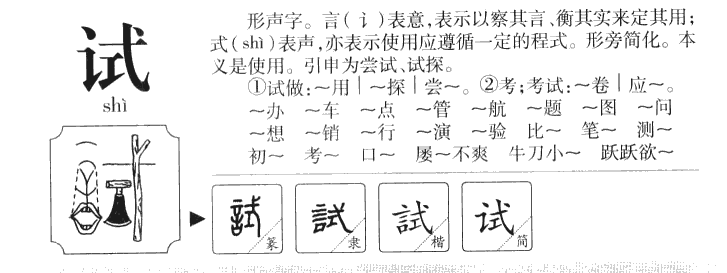 试
shì
形声字。言(讠)表意,表示以察其言、衡其实来定其用;
式(shì)表声,亦表示使用应遵循一定的程式。形旁简化。本
义是使用。引申为尝试、试探。
①试做:～用|～探|尝～。②考;考试:～卷|应～。
～办 ～车 ～点 ～管 ～航 ～题 ～图 ～问
～想 ～销 ～行 ～演 ～验 比～ 笔～ 测～
初～ 考～ 口～ 屡～不爽 牛刀小～ 跃跃欲～
試 篆 試 隶 試 楷 试 简